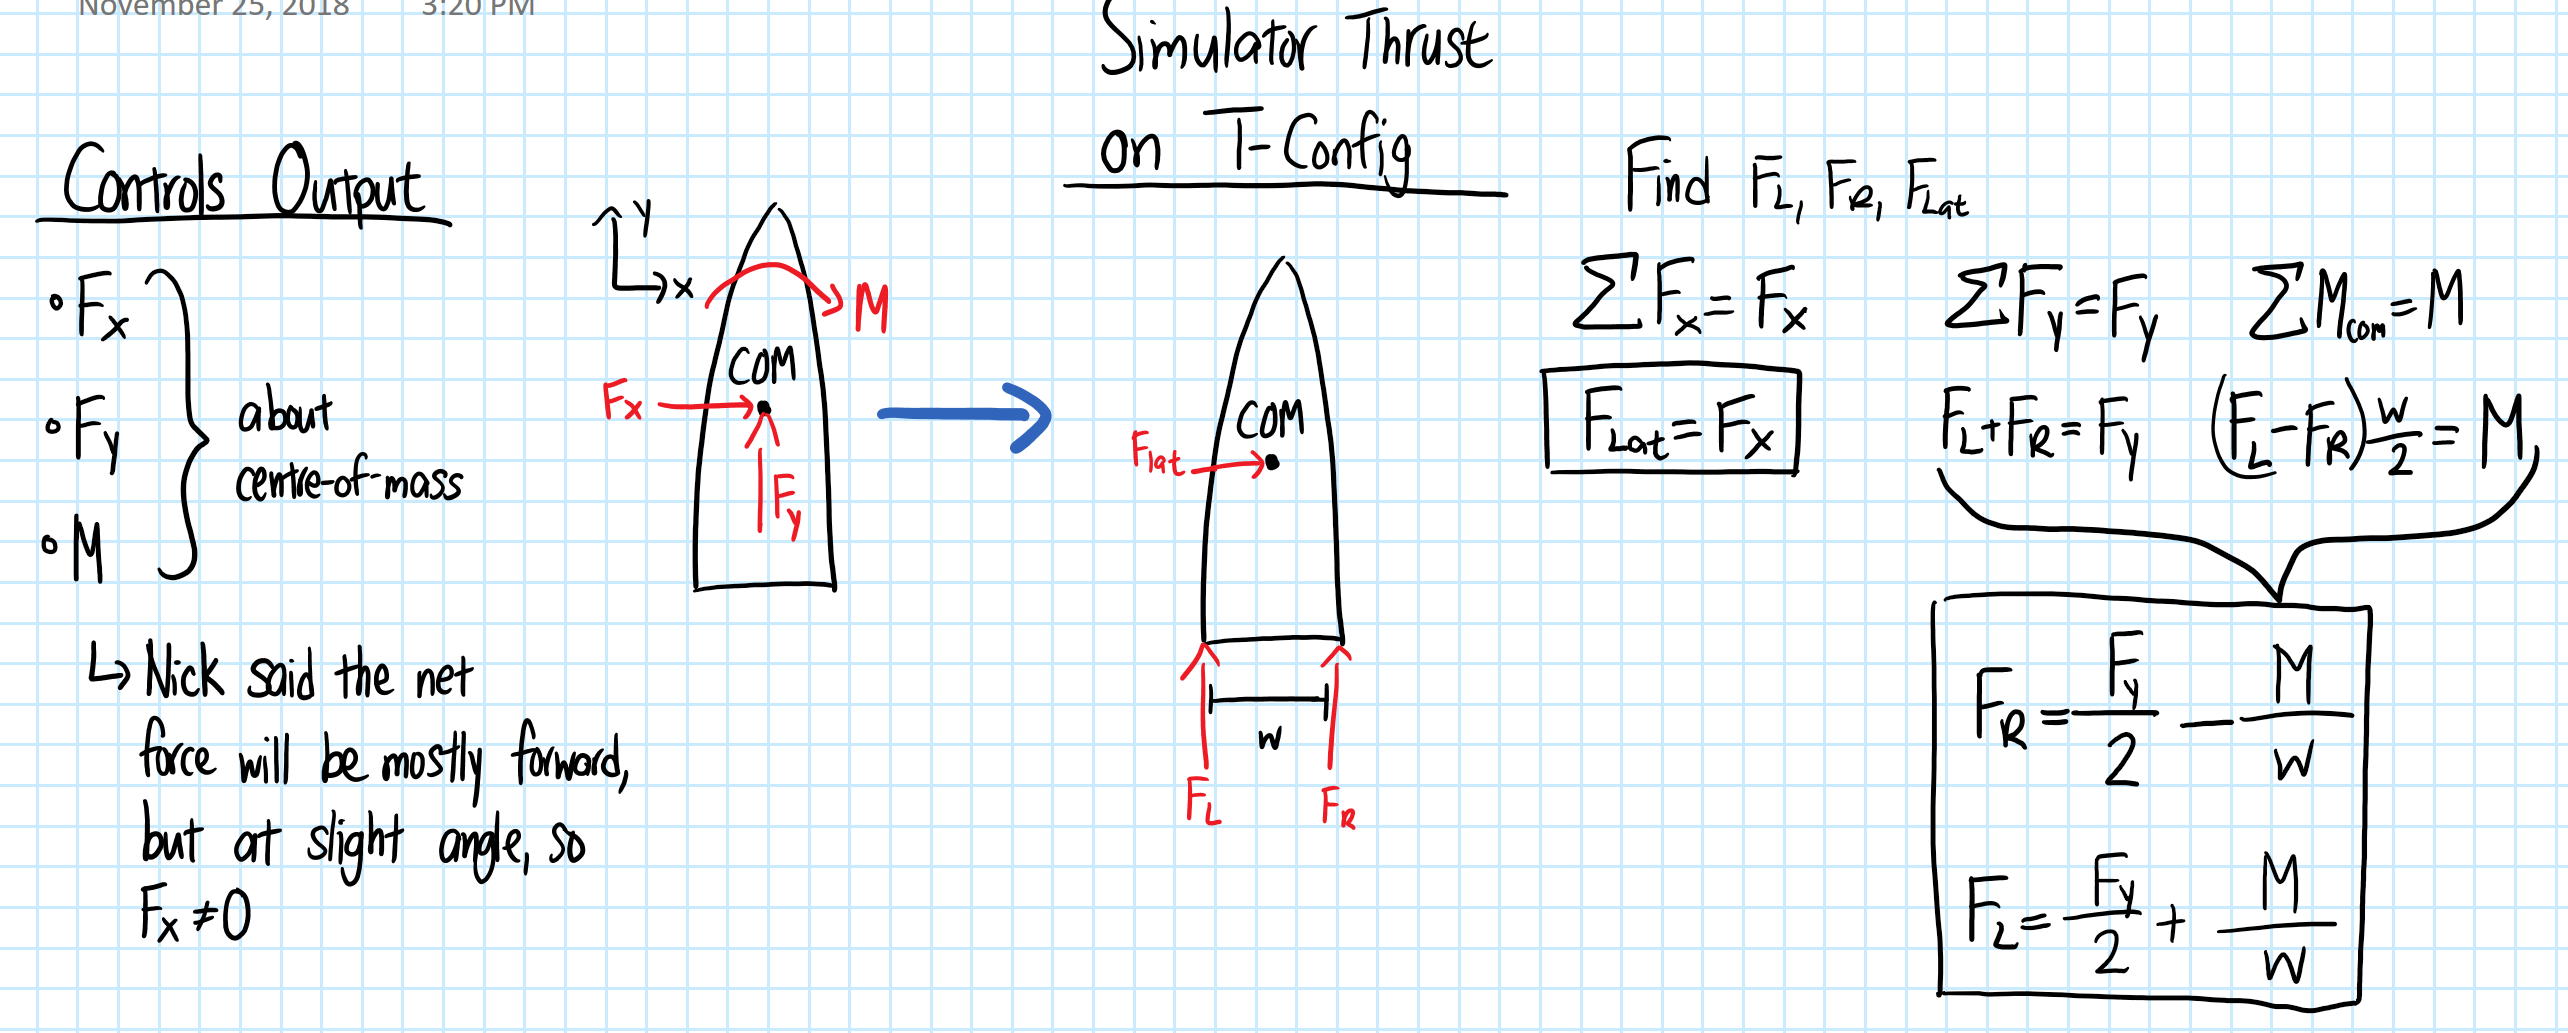 November 25, 2018 3:20 PM
Simulator Thrust
on T-Config
Controls Output
• Fx
• Fy
• M
about
centre-of-mass
↳ Nick said the net
force will be mostly forward,
but at slight angle, so
Fx ≠ 0
y
x
M
COM
Fx
Fy
COM
Flat
w
FL
FR
Find FL, FR, FLat
ΣFx = Fx
ΣFy = Fy
ΣMcom = M
FLat = Fx
FL + FR = Fy
(FL - FR) w/2 = M
FR = Fy/2 - M/w
FL = Fy/2 + M/w